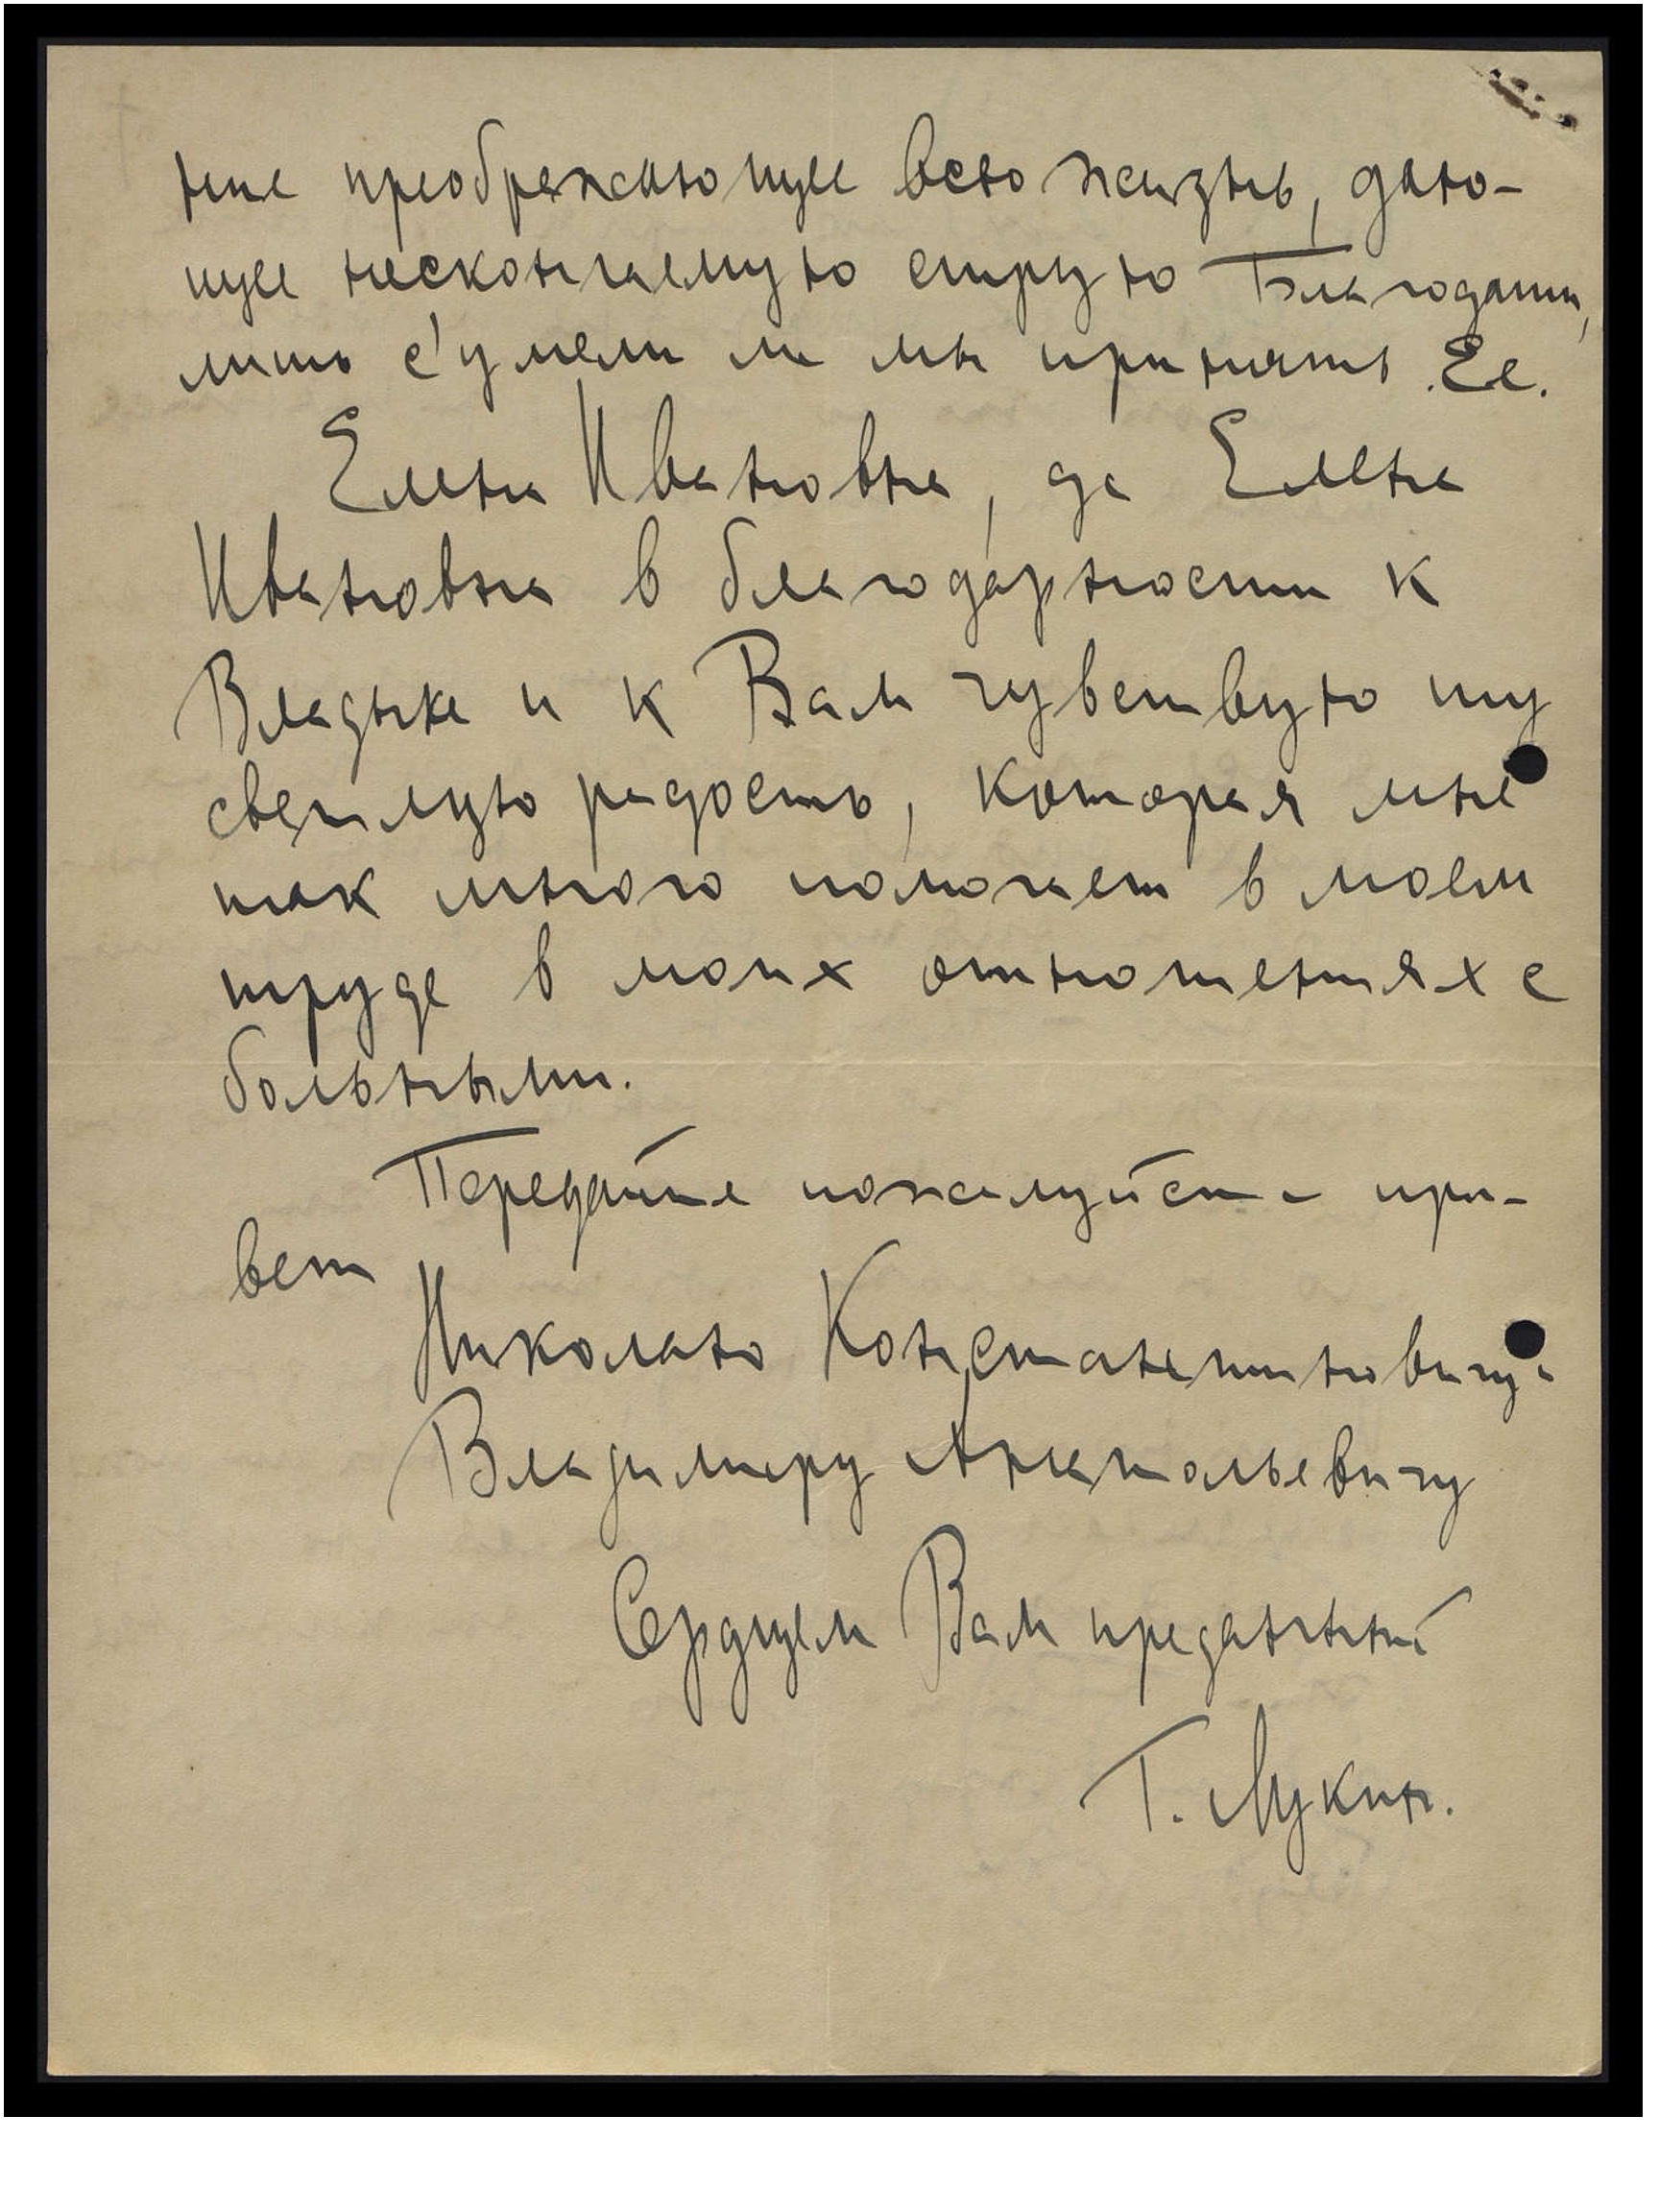 ние преображающее всю жизнь, даю-
щее нескончаемую струю Благодати,
лишь с'умели ли мы принять Ее.
Елена Ивановна, да Елена
Ивановна в благодарности к
Владыке и к Вам чувствую ту
светлую радость, которая мне
так много помогает в моем
труде в моих отношениях с
больными.
Передайте пожалуйста при-
вет
Николаю Константиновичу и
Владимиру Анатольевичу
Сердцем Вам преданный
Г. Лукин.